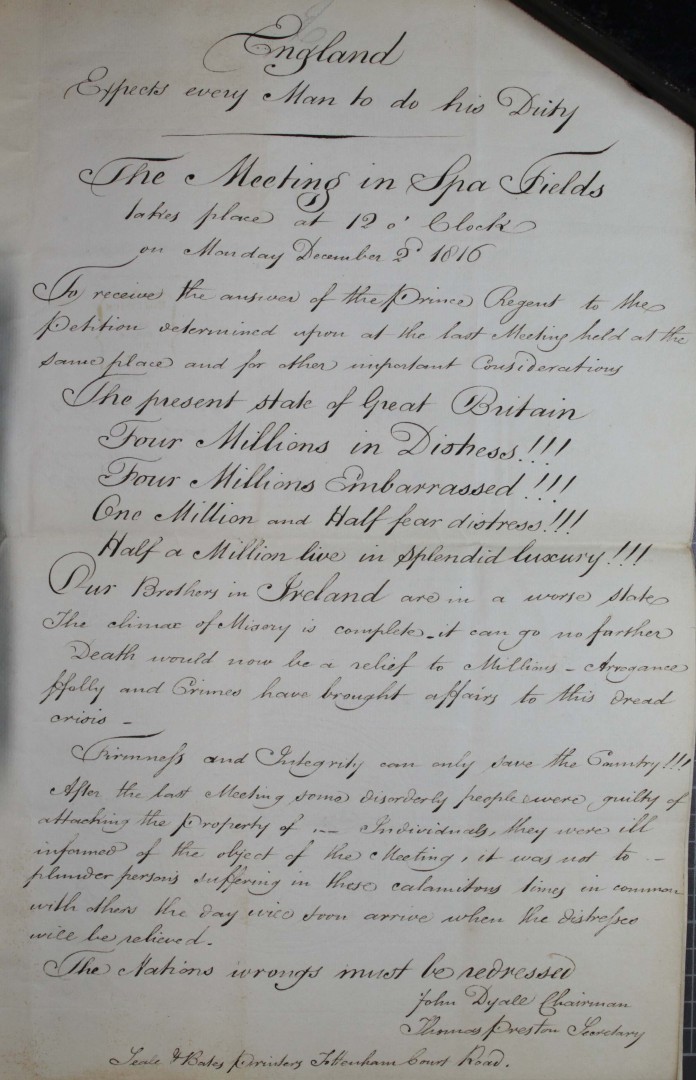 England
Expects every Man to do his Duty
The Meeting in Spa Fields
takes place at 12 o' Clock
on Monday December 2d 1816
To receive the answer of the Prince Regent to the
Petition determined upon at the last Meeting held at the
same place and for other important Considerations
The present state of Great Britain
Four Millions in Distress!!!
Four Millions Embarrassed!!!
One Million and Half fear distress!!!
Half a Million live in splendid luxury!!!
Our Brothers in Ireland are in a worse state
The climax of Misery is complete - it can go no farther
Death would now be a relief to Millions - Arrogance
ffolly and Crimes have brought affairs to this dread
crisis -
Firmness and Integrity can only save the Country!!!
After the last Meeting some disorderly people were guilty of
attacking the Property of -- Individuals, they were ill
informed of the object of the Meeting, it was not to --
plunder persons suffering in these calamitous times in common
with others the day will soon arrive when the distresse
will be relieved.
The Nations wrongs must be redressed
John Dyall Chairman
Thomas Preston Secretary
Seale & Bates Printers Tottenham Court Road.